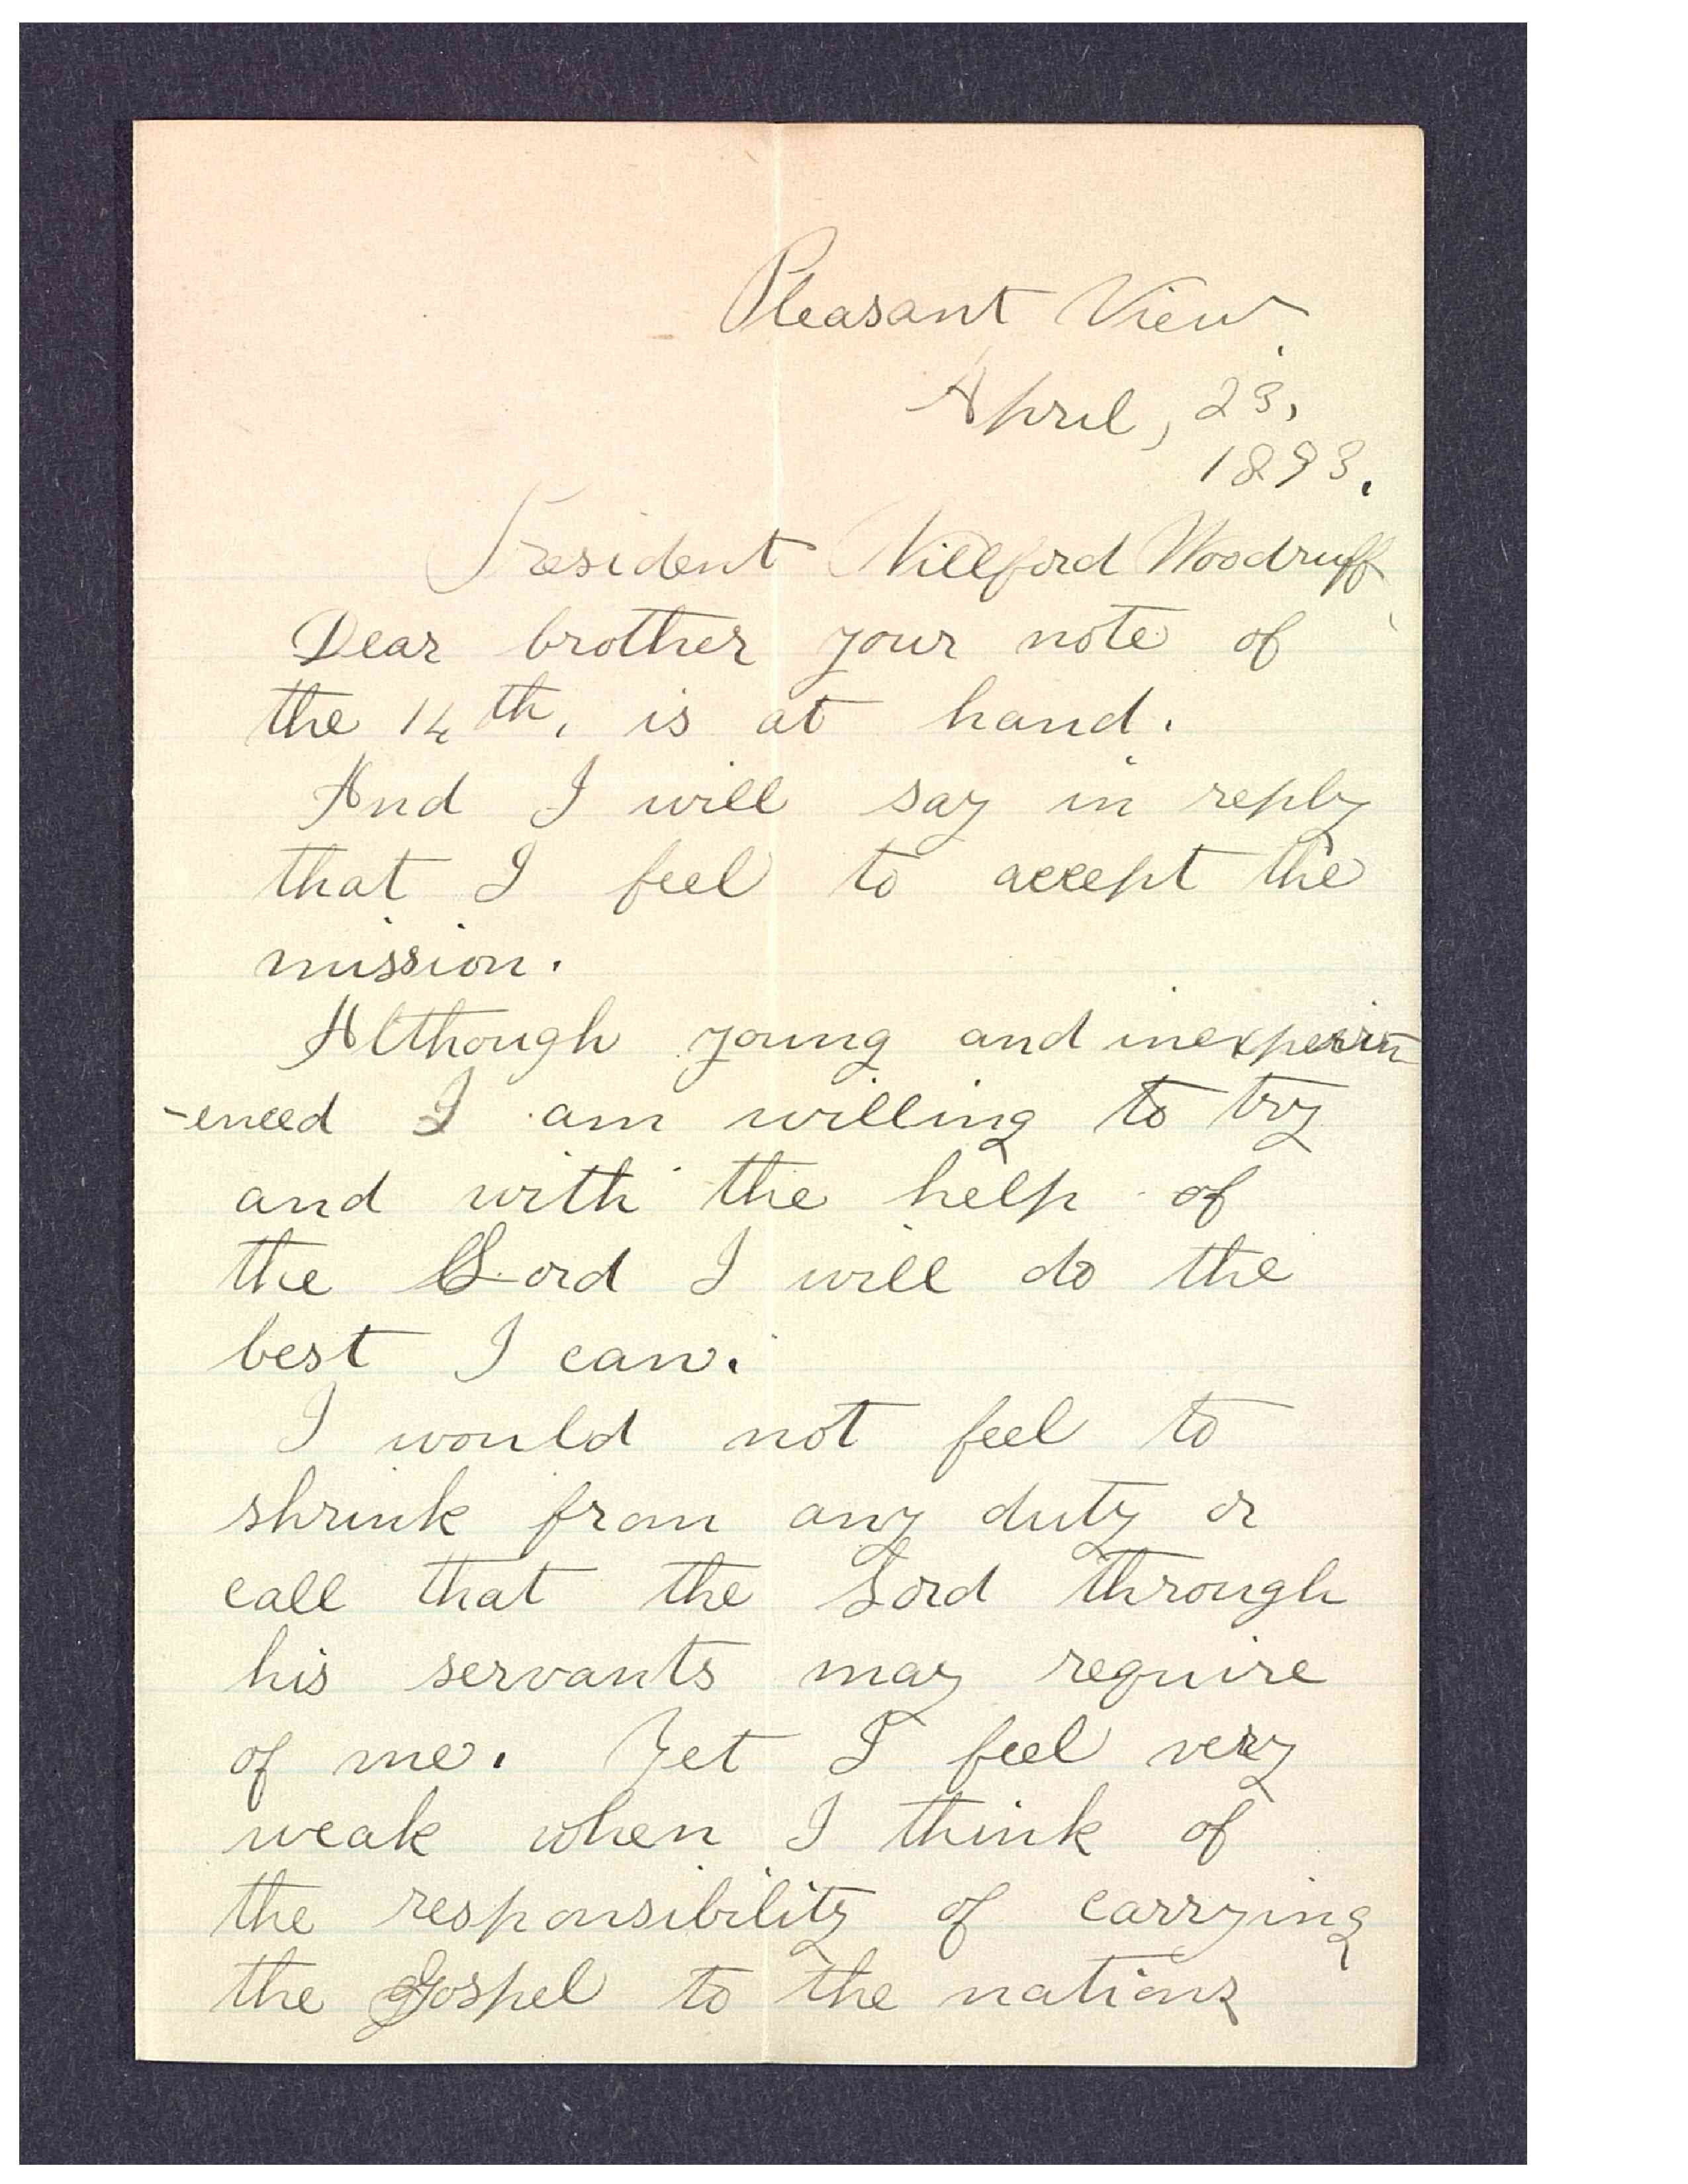 Pleasant View.
April, 23,
1893.
President Willford Woodruff
Dear brother your note of
the 14th, is at hand.
And I will say in reply
that I feel to accept the
mission.
Although young and inexperin
-enced I am willing to try
and with the help of
the Lord I will do the
best I can.
I would not feel to
shrink from any duty or
call that the Lord through
his servants may require
of me. Yet I feel very
weak when I think of
the responsibility of carrying
the Gospel to the nations